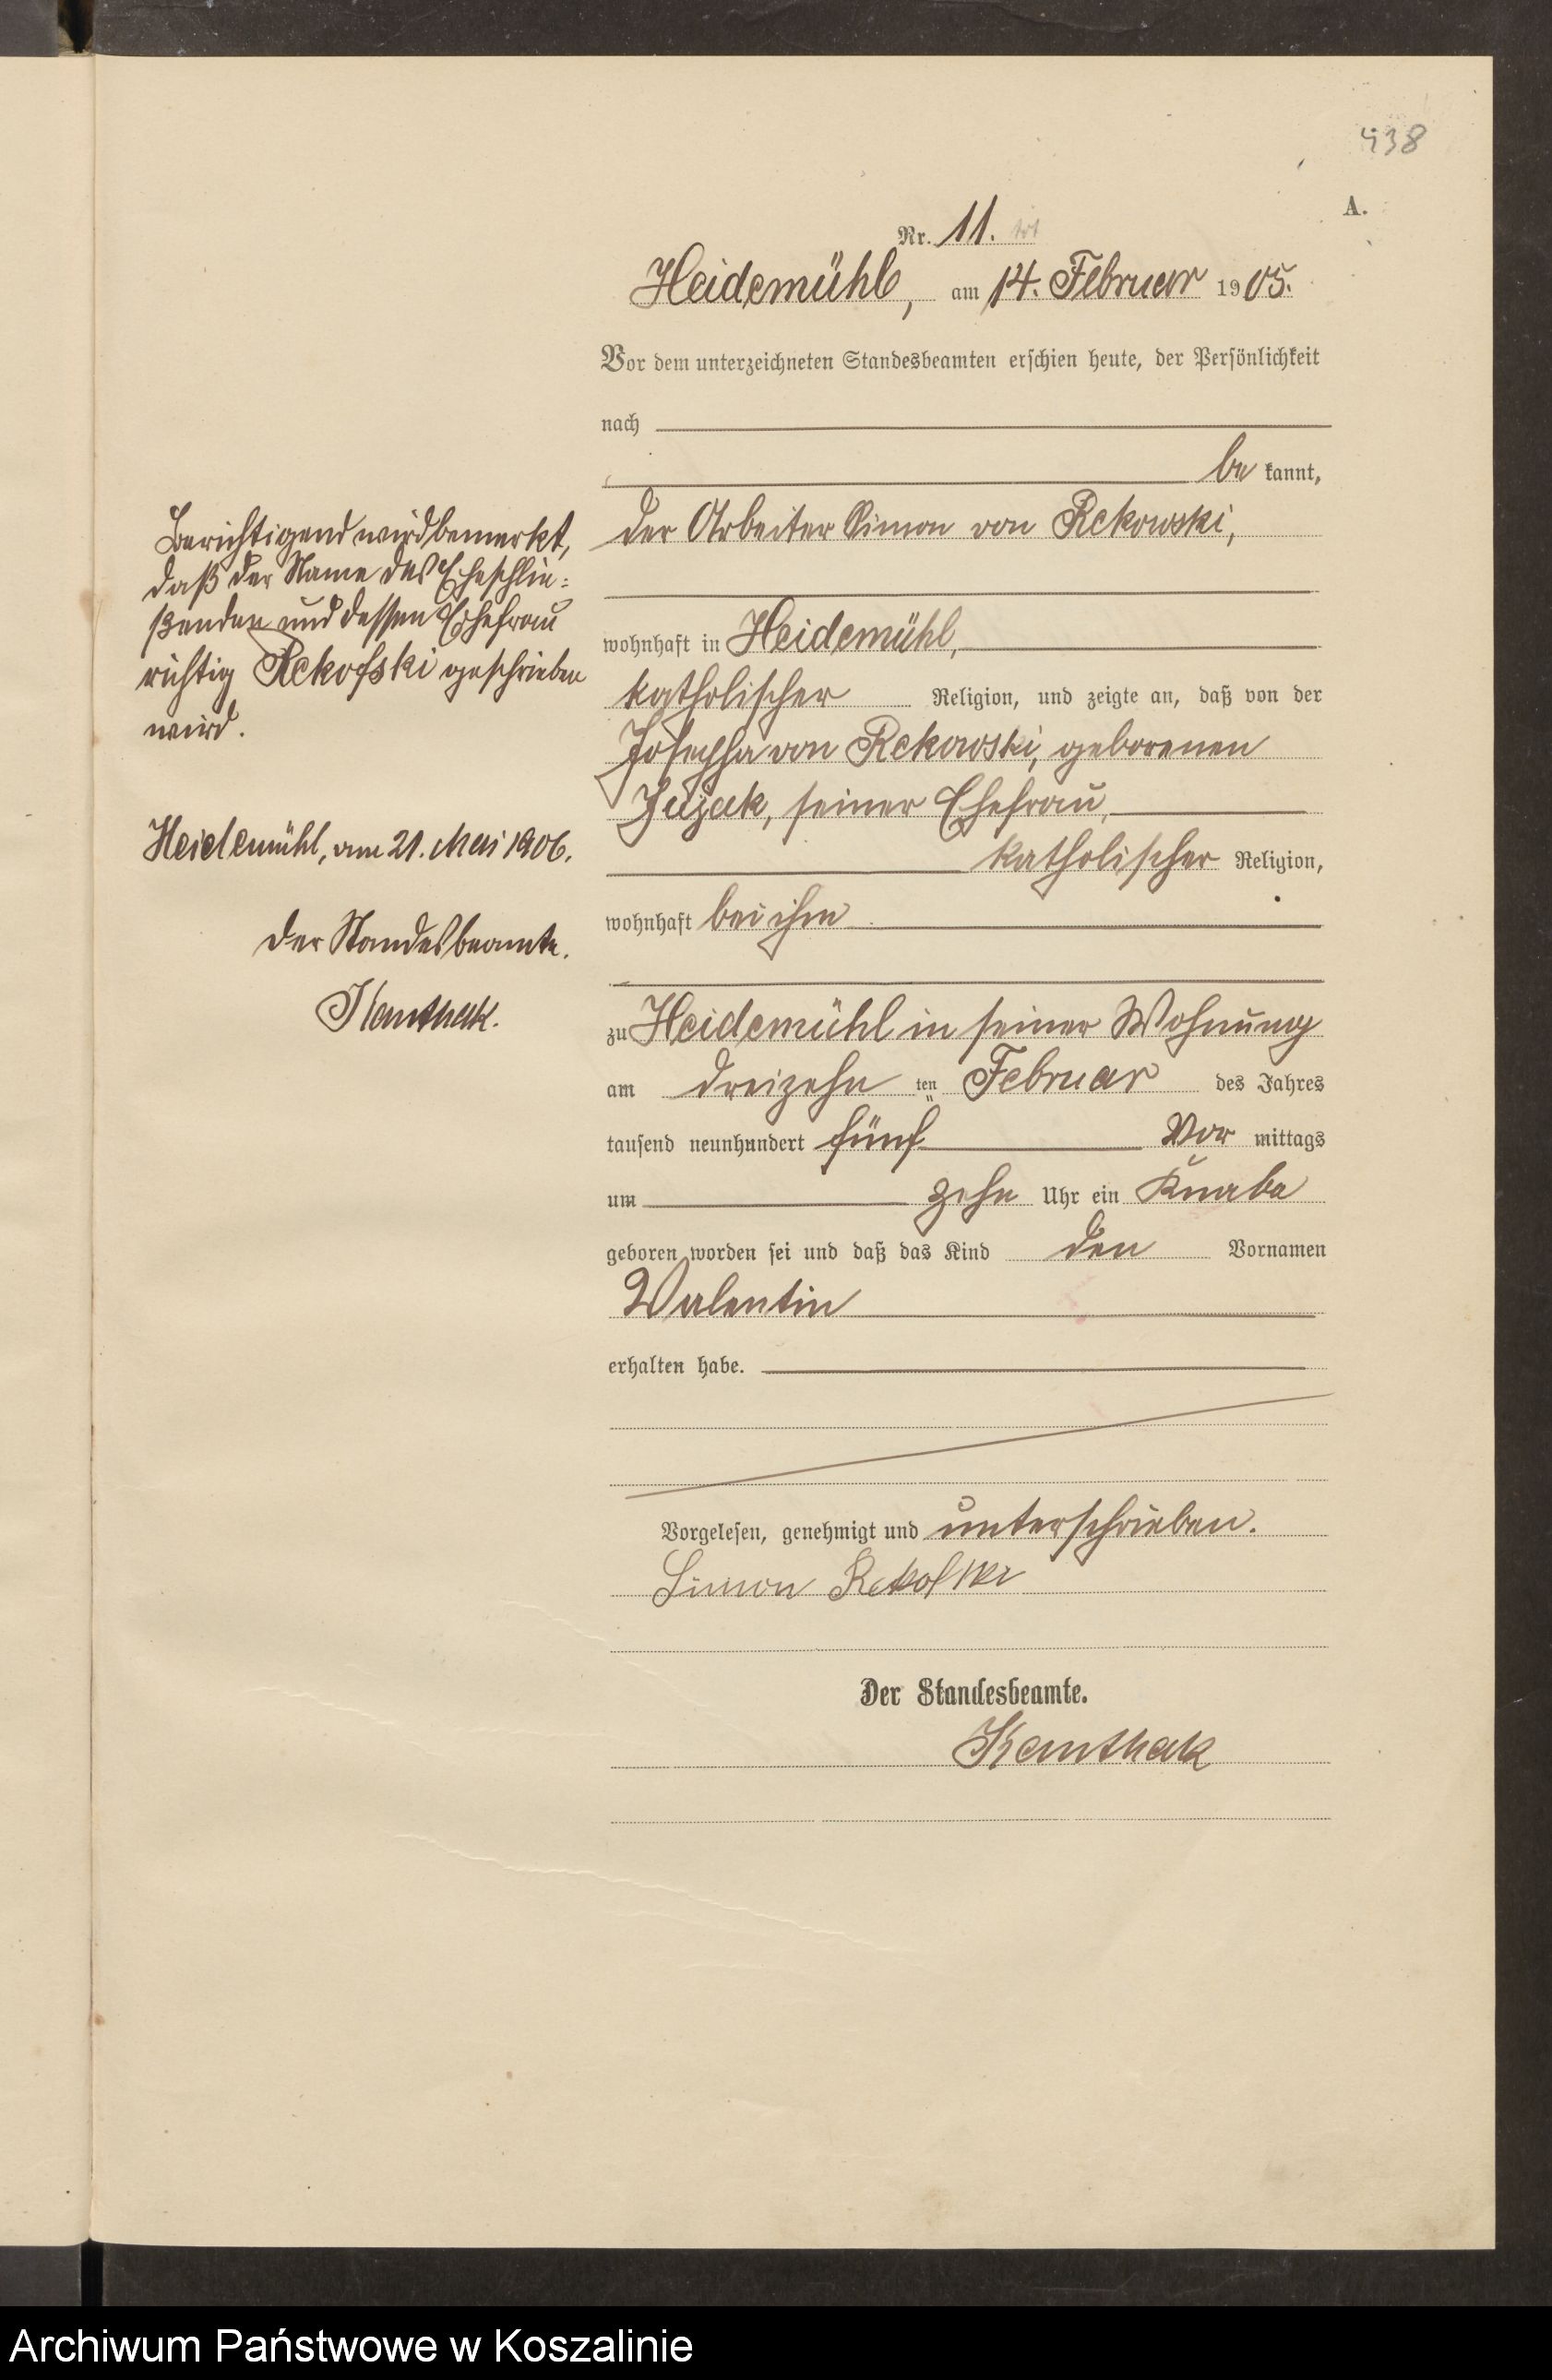 438
A.
Nr. 11.
Heidemühl, am 14. Februar 1905.
Vor dem unterzeichneten Standesbeamten erschien heute, der Persönlichkeit
nach
be kannt,
der Arbeiter Simon von Rekowski,
wohnhaft in Heidemühl,
katholischer Religion, und zeigte an, daß von der
Josepha von Rekowski, geborenen
seiner Ehefrau,
katholischer Religion,
wohnhaft bei ihm
zu Heidemühl in seiner Wohnung
am dreizehn ten Februar des Jahres
tausend neunhundert fünf Vor mittags
um zehn Uhr ein Knabe
geboren worden sei und daß das Kind den Vornamen
Valentin
erhalten habe.
Vorgelesen, genehmigt und unterschrieben.
Simon Rekofski
Der Standesbeamte.
Kanthak
Berichtigend wird bemerkt,
daß der Name des Eheschlie=
ßenden und dessen Ehefrau
richtig Rekofski geschrieben
wird.
Heidemühl, am 21. Mai 1906.
Der Standesbeamte.
Kanthak.
Archiwum Państwowe w Koszalinie